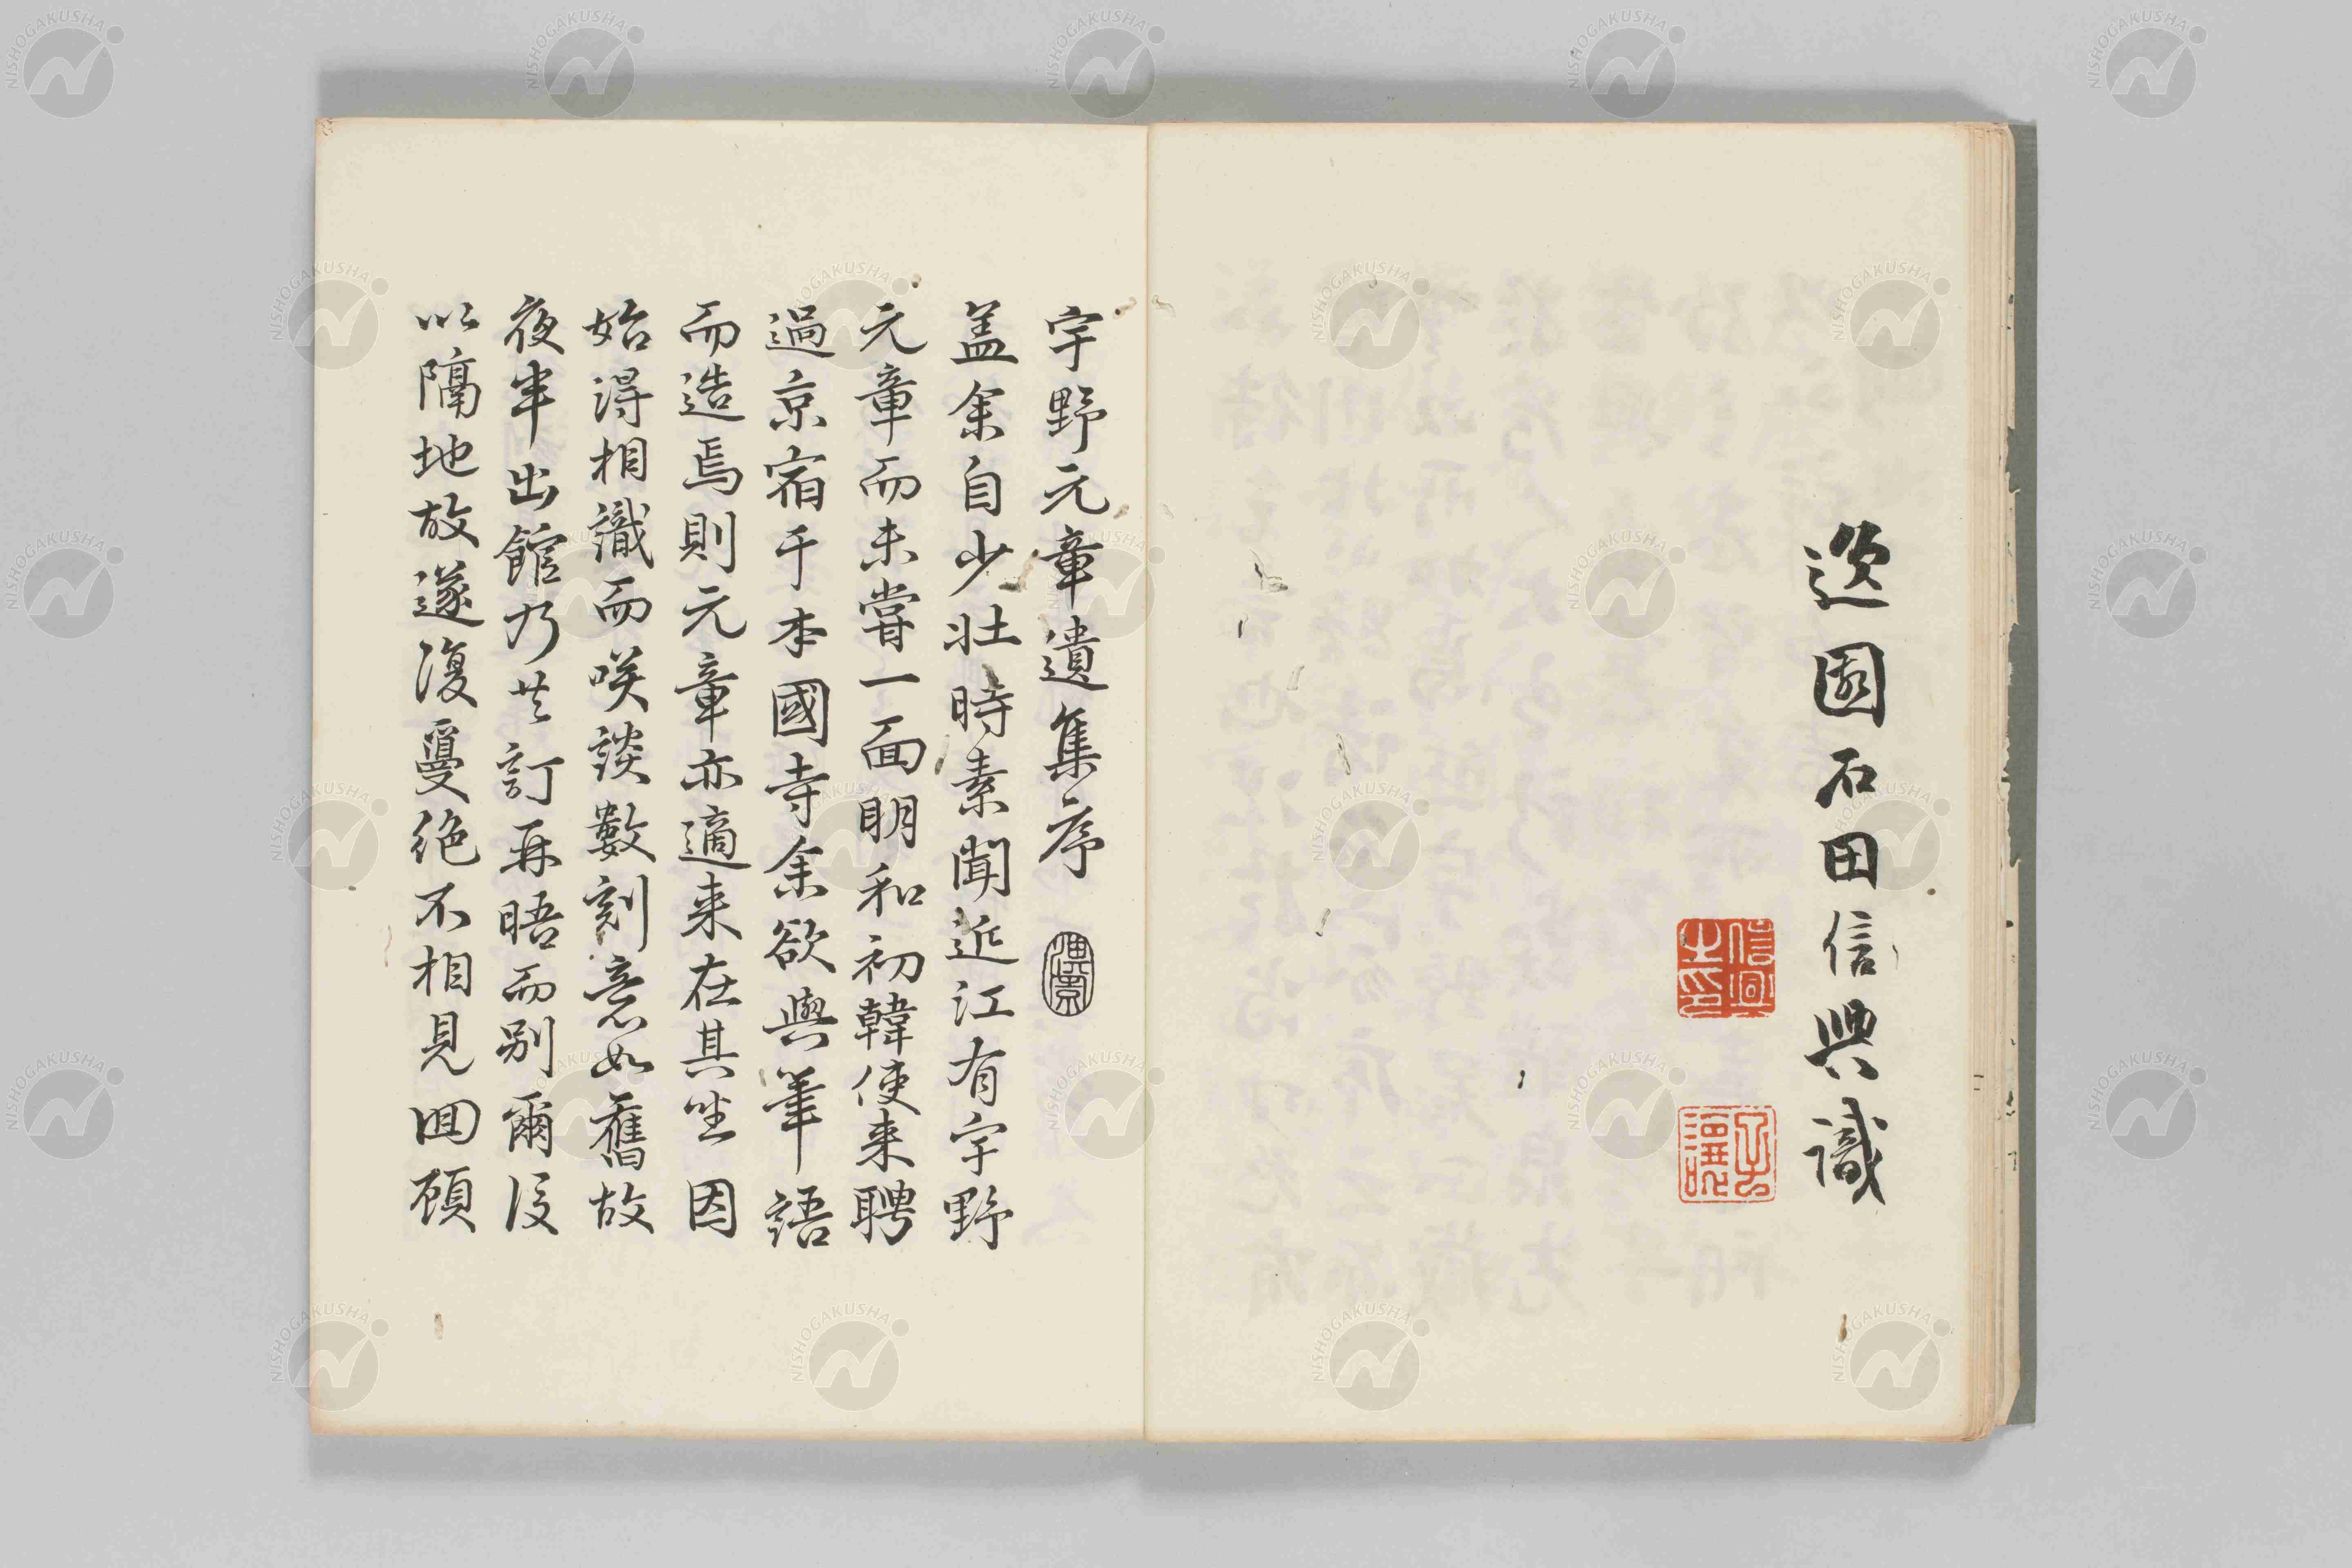 園石田信興識
信興之印
宇野元章遺集序
盖余自少壯時素聞近江有宇野
元章而未嘗一面明和初韓使来聘
過京宿于本國寺余欲與筆語
而造焉則元章亦適来在其坐因
始得相識而咲談數刻意如舊故
夜半出館乃共訂再晤而別爾後
以隔地故遂復敻絶不相見回顧
NISHOGAKUSHA